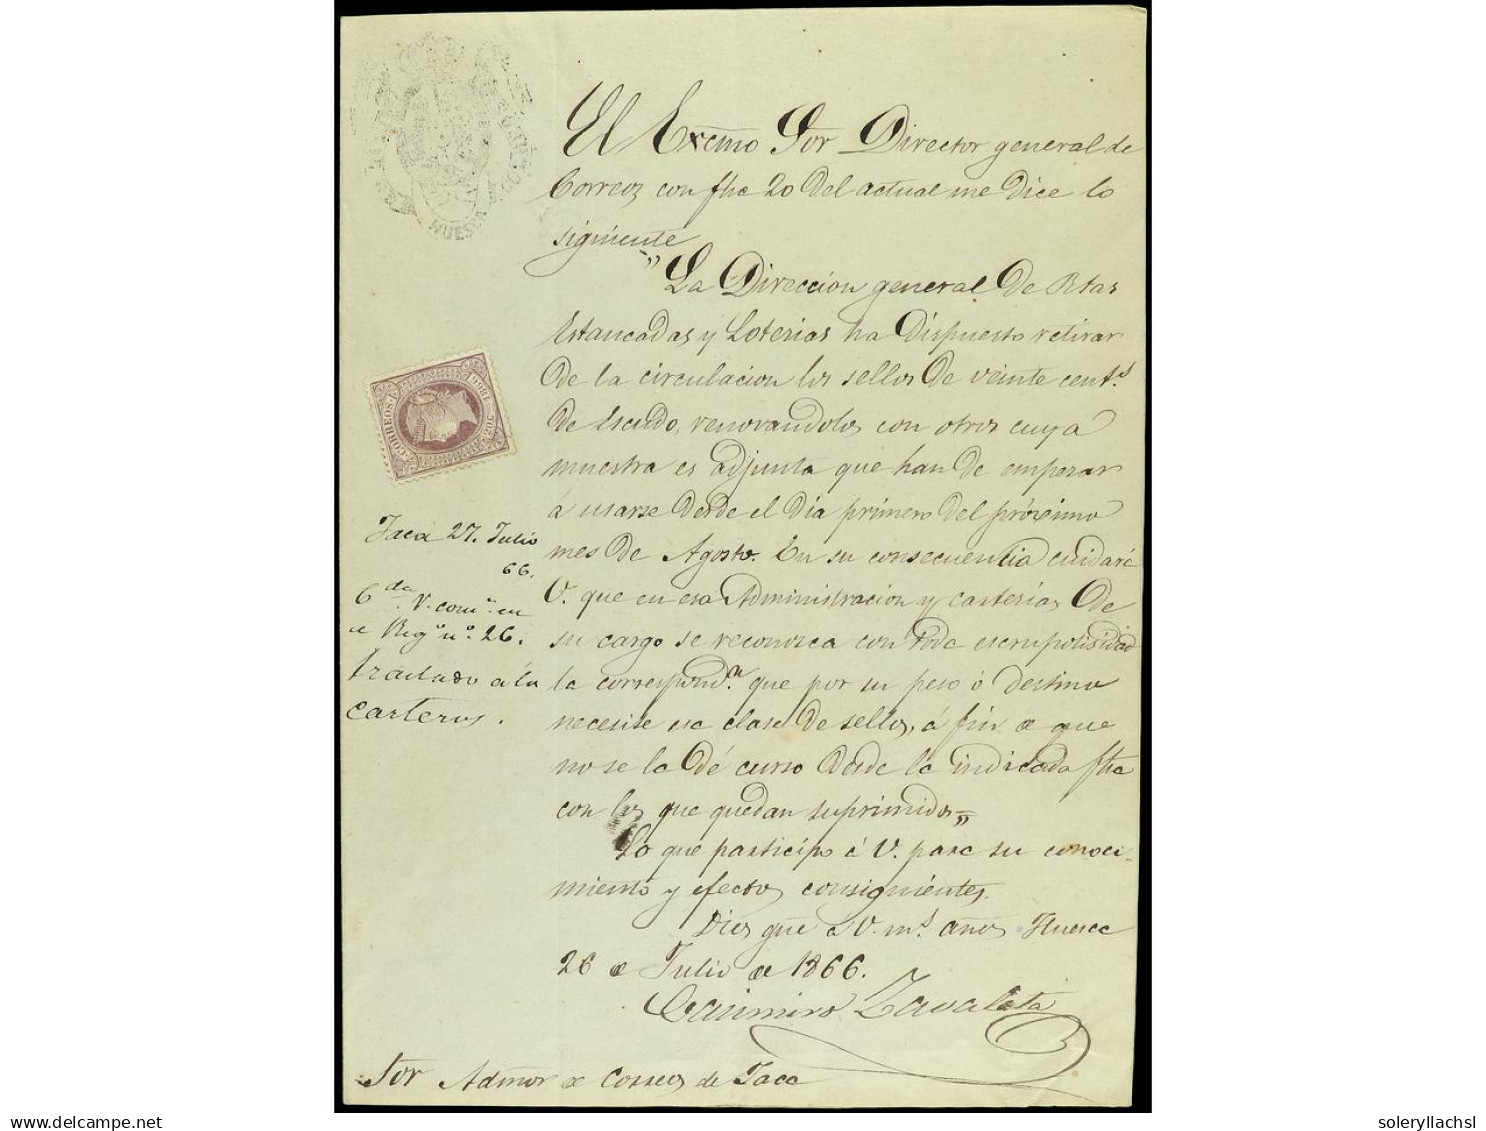 HUESCA
El Excmo Sor Director general de
Correos con fha 20 del actual me dice lo
siguiente
"La Direccion general de Rtas
Estancadas y Loterias ha dispuesto retirar
de la circulacion los sellos de veinte cent.s
de Escudo, renovandolos con otros cuya
muestra es adjunta que han de empezar
á usarse desde el dia primero del próximo
mes de Agosto. En su consecuencia cuidará
V. que en esa Administracion y carterias de
su cargo se reconozca con toda escrupulisidad
la correspond.a que por su peso ó destino
necesite esa clase de sellos, á fin de que
no se la dé curso desde la indicada fha
con los que quedan suprimidos"
Lo que participo á V. para su conoci-
miento y efectos consiguientes.
Dios gue á V. m.s años Huesca
26 de Julio de 1866.
Casimiro Zavaleta
Sor Admor de Correos de Jaca
CORREOS
Jaca 27. Julio
66.
V. com.n en
Reg.o n.o 26.
traslado á la
carteros.
delcampe.net
soleryllachsl